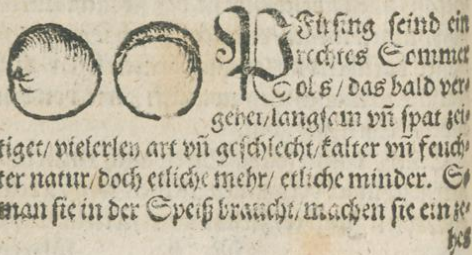 PFirsing seind ein
rechtes Sommer
Obs / das bald ver-
gehet / langsam vñ spat zei-
tiget / vielerley art vñ geschlecht / kalter vñ feuch-
ter natur / doch etliche mehr / etliche minder. So
man sie in der Speiß braucht / machen sie ein ze-
hes